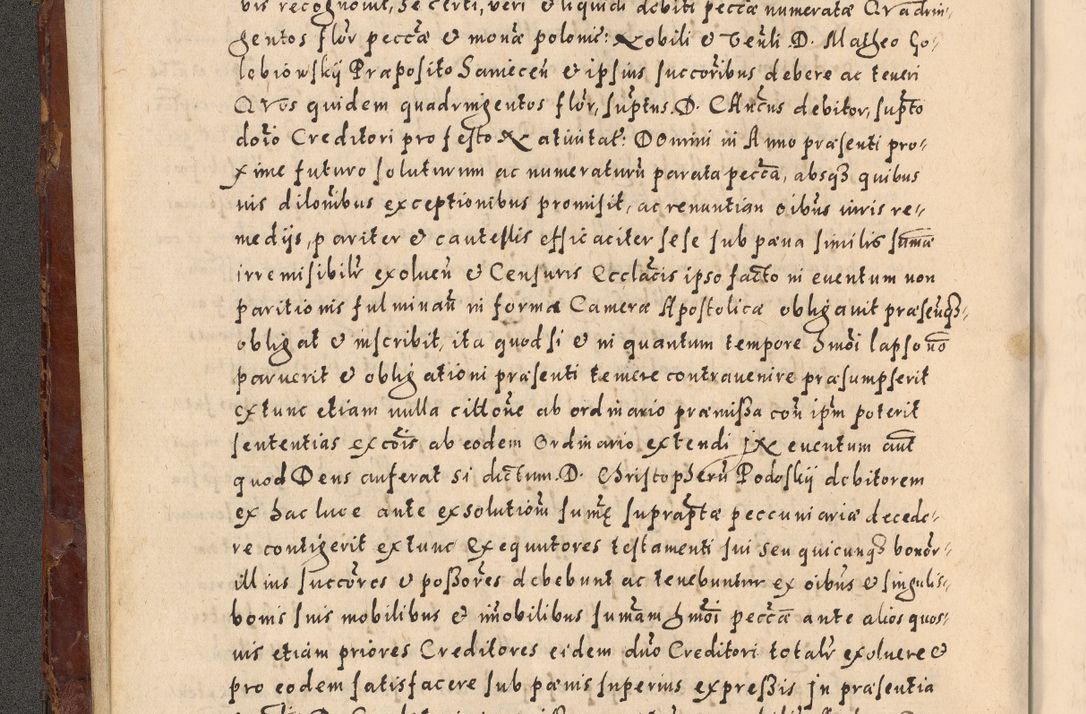 vis recognovit, se certi, veri et liquidi debiti peccæ numeratæ Qvadrin-
gentos flor peccæ et monæ polonic: Nobili et Venli D. Matheo Go-
lebiowskij Præposito Saniecen et ipsius succoribus debere ac teneri
Qvos quidem quadringentos flor, suptus D. CAncus debitor, supto
dcto Creditori pro festo Nativitat: Domini in Anno præsenti pro-
xime futuro soluturum ac numeraturu parata pecca, absq3 quibus
uis dilonibus exceptionibus promisit, ac renuntian oibus iuris re-
medijs, pariter et cautellis efficaciter sese sub pæna similis sumæ
irremisibilr exoluen et Censuris Ecclacis ipso facto in eventum non
paritionis fulminan in forma Cameræ Apostolicæ obligavit præsenq3-
obligat et inscribit, ita quod si et in quantum tempore hmoi lapso no
paruerit et obligationi præsenti temere contravenire præsumpserit
extunc etiam nulla cittone ab ordinario præmissa con ipm poterit
sententias excois ab eodem Ordinario extendi IN euentum aut
quod Deus auferat si dictum D. Christopheru Podoskij debitorem
ex hac luce ante exsolutiom sumę supraptæ peccuniariæ decede-
re contigerit extunc Exequutores testamenti sui seu quicunq3 bonor-
illius succores et possores debebunt ac tenebuntur ex oibus et singulis-
bonis suis mobilibus et imobilibus sumam hmoi peccæ ante alios quos-
uis etiam priores Creditores eidem dno Creditori totalr exoluere et
pro eodem satisfacere sub pænis superius expressis In præsentia